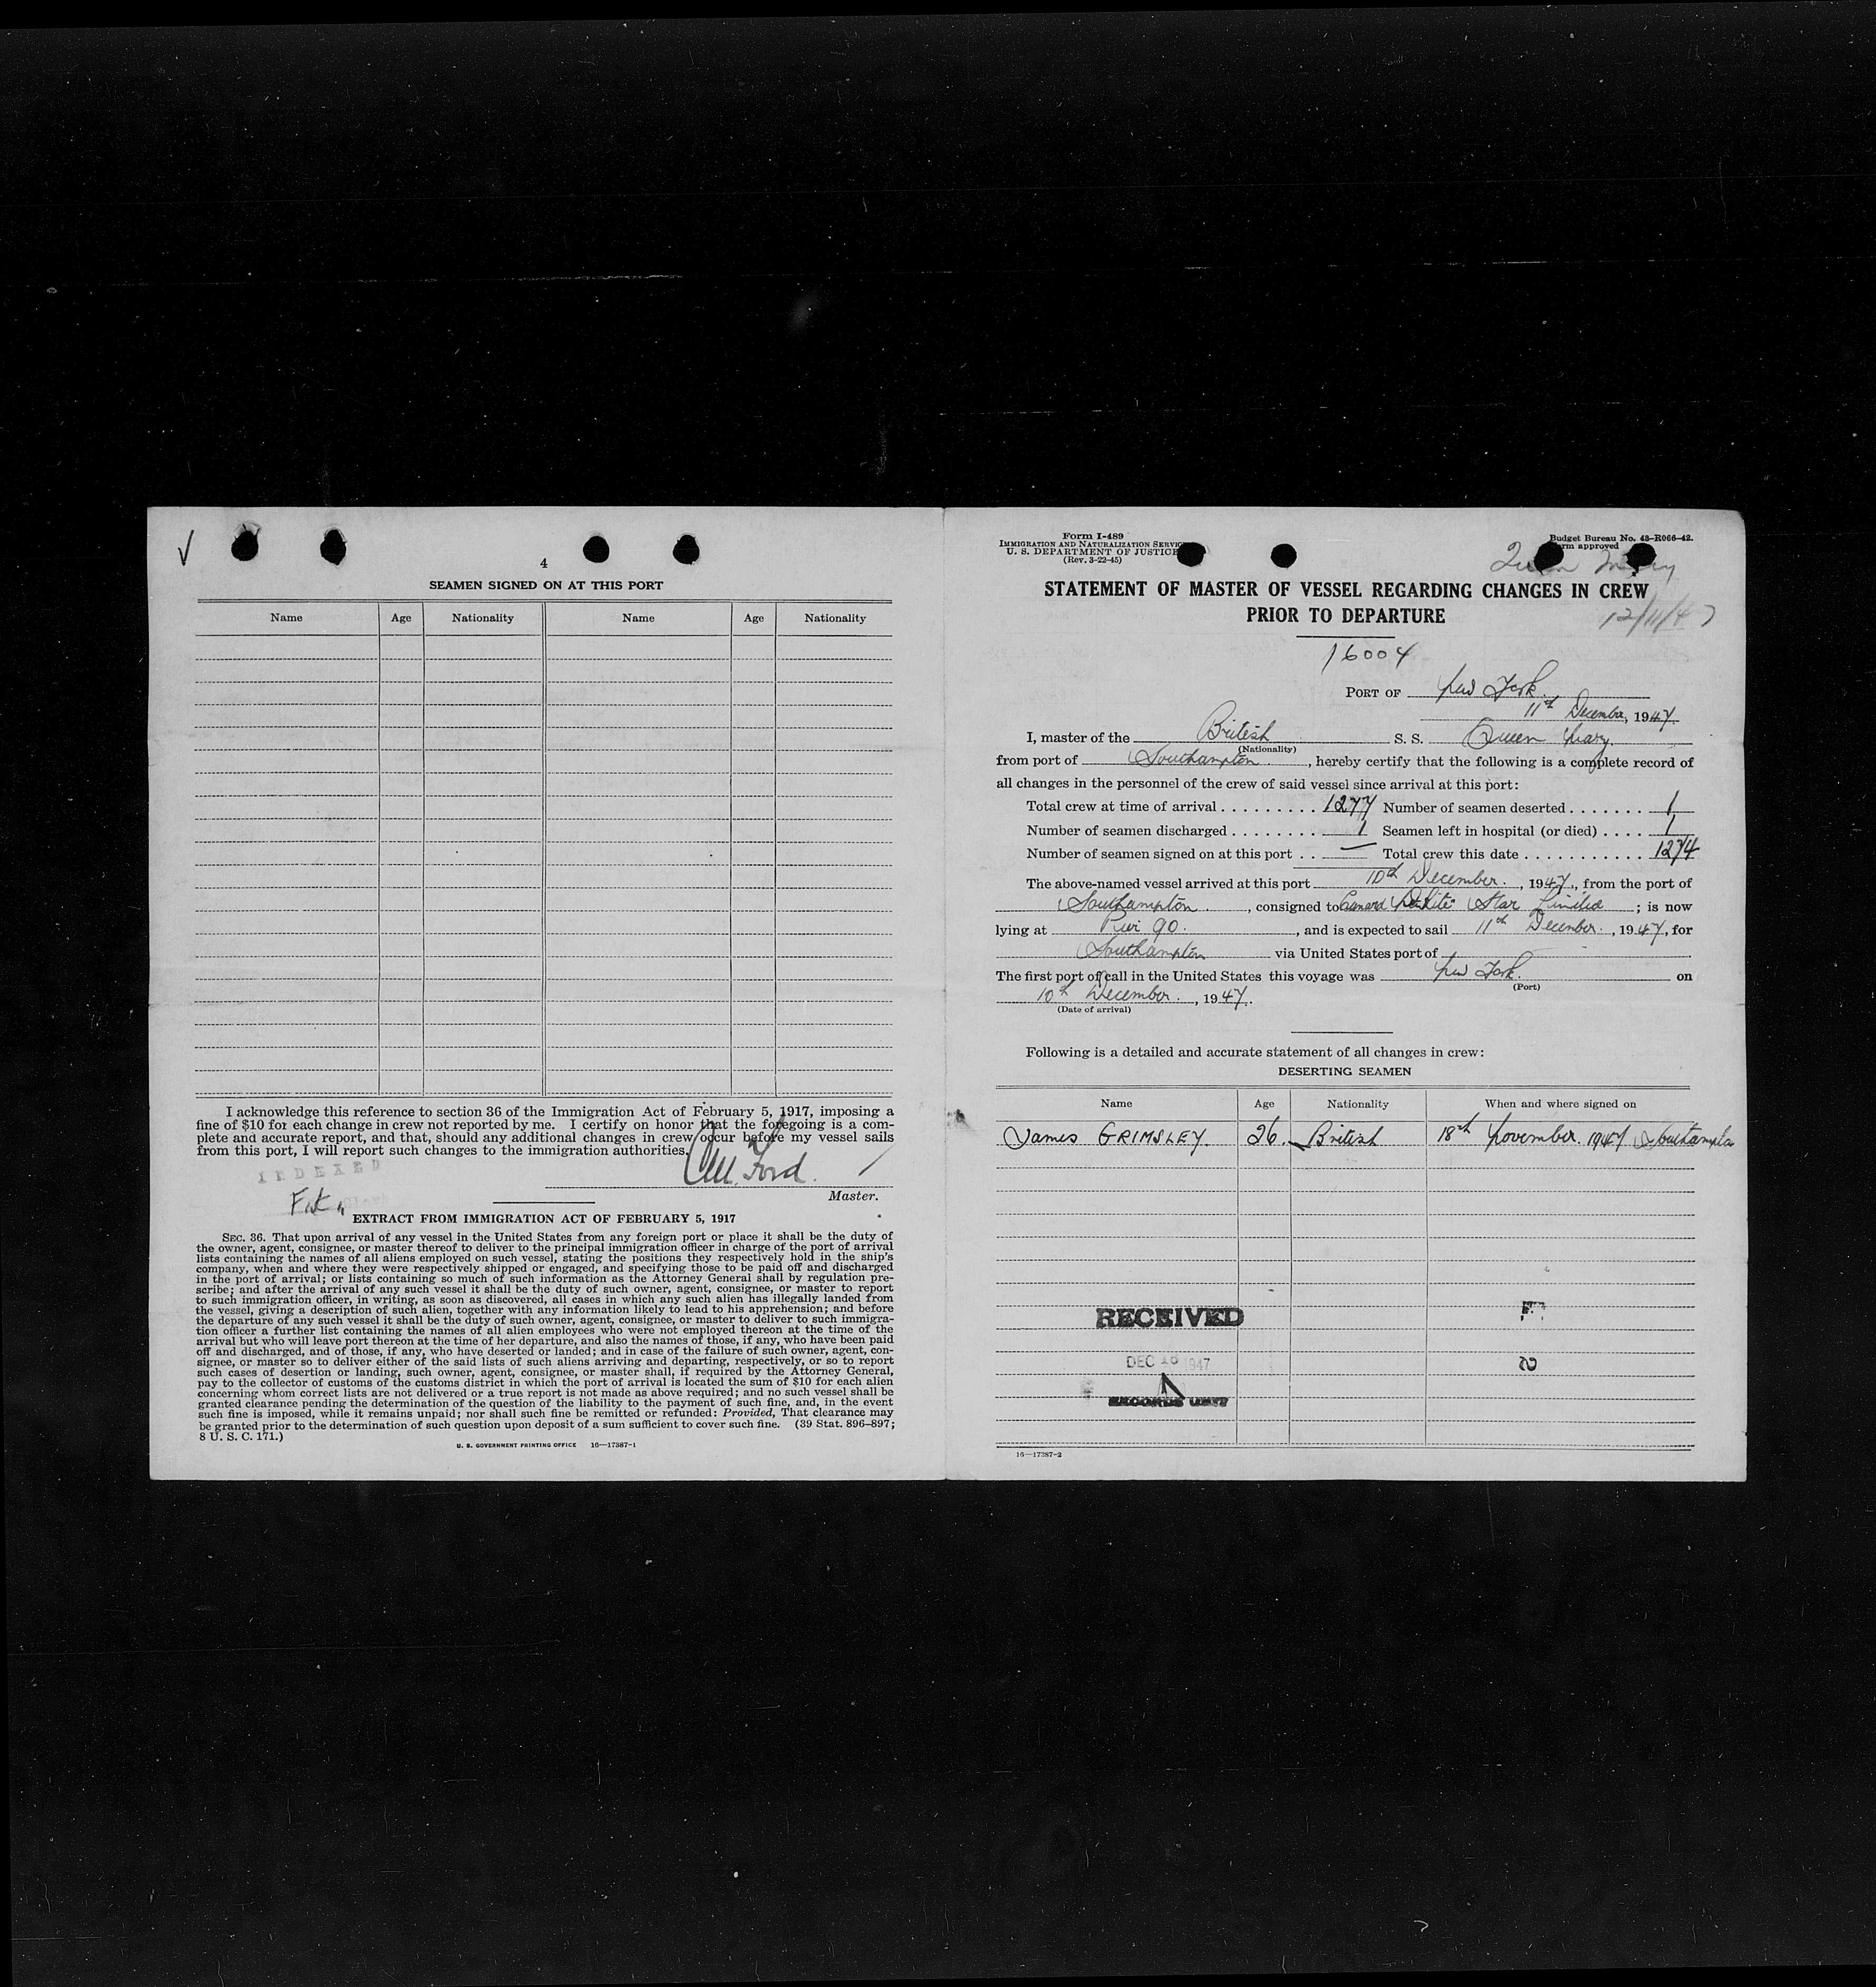 4
SEAMEN SIGNED ON AT THIS PORT
Name Age Nationality Name Age Nationality
I acknowledge this reference to section 36 of the Immigration Act of February 5, 1917, imposing a
fine of $10 for each change in crew not reported by me. I certify on honor that the foregoing is a com-
plete and accurate report, and that, should any additional changes in crew occur before my vessel sails
from this port, I will report such changes to the immigration authorities.
INDEXED
Ford.
Master.
EXTRACT FROM IMMIGRATION ACT OF FEBRUARY 5, 1917
SEC. 36. That upon arrival of any vessel in the United States from any foreign port or place it shall be the duty of
the owner, agent, consignee, or master thereof to deliver to the principal immigration officer in charge of the port of arrival
lists containing the names of all aliens employed on such vessel, stating the positions they respectively hold in the ship's
company, when and where they were respectively shipped or engaged, and specifying those to be paid off and discharged
in the port of arrival; or lists containing so much of such information as the Attorney General shall by regulation pre-
scribe; and after the arrival of any such vessel it shall be the duty of such owner, agent, consignee, or master to report
to such immigration officer, in writing, as soon as discovered, all cases in which any such alien has illegally landed from
the vessel, giving a description of such alien, together with any information likely to lead to his apprehension; and before
the departure of any such vessel it shall be the duty of such owner, agent, consignee, or master to deliver to such immigra-
tion officer a further list containing the names of all alien employees who were not employed thereon at the time of the
arrival but who will leave port thereon at the time of her departure, and also the names of those, if any, who have been paid
off and discharged, and of those, if any, who have deserted or landed; and in case of the failure of such owner, agent, con-
signee, or master so to deliver either of the said lists of such aliens arriving and departing, respectively, or so to report
such cases of desertion or landing, such owner, agent, consignee, or master shall, if required by the Attorney General,
pay to the collector of customs of the customs district in which the port of arrival is located the sum of $10 for each alien
concerning whom correct lists are not delivered or a true report is not made as above required; and no such vessel shall be
granted clearance pending the determination of the question of the liability to the payment of such fine, and, in the event
such fine is imposed, while it remains unpaid; nor shall such fine be remitted or refunded: Provided, That clearance may
be granted prior to the determination of such question upon deposit of a sum sufficient to cover such fine. (39 Stat. 896–897;
8 U. S. C. 171.)
U. S. GOVERNMENT PRINTING OFFICE 16—17387-1
Form I-489
IMMIGRATION AND NATURALIZATION SERVICE
U. S. DEPARTMENT OF JUSTICE
(Rev. 3-22-45)
Budget Bureau No. 43–R066–42.
Form approved
Queen Mary
12/11/47
STATEMENT OF MASTER OF VESSEL REGARDING CHANGES IN CREW
PRIOR TO DEPARTURE
16004
PORT OF New York.
11th December, 1947.
I, master of the British S. S. Queen Mary.
(Nationality)
from port of Southampton., hereby certify that the following is a complete record of
all changes in the personnel of the crew of said vessel since arrival at this port:
Total crew at time of arrival . . . . . . . . . 1277 Number of seamen deserted . . . . . . . 1
Number of seamen discharged . . . . . . . . 1 Seamen left in hospital (or died) . . . . 1
Number of seamen signed on at this port . . — Total crew this date . . . . . . . . . . . 1274
The above-named vessel arrived at this port 10th December., 1947., from the port of
Southampton., consigned to Cunard White Star Limited; is now
lying at Pier 90., and is expected to sail 11th December., 1947, for
Southampton via United States port of
The first port of call in the United States this voyage was New York. on
(Port)
10th December., 1947.
(Date of arrival)
Following is a detailed and accurate statement of all changes in crew:
DESERTING SEAMEN
Name Age Nationality When and where signed on
James GRIMSLEY. 26. British 18th November. 1947 Southampton
RECEIVED
DEC 1947
RECORDS UNIT
16—17387-2